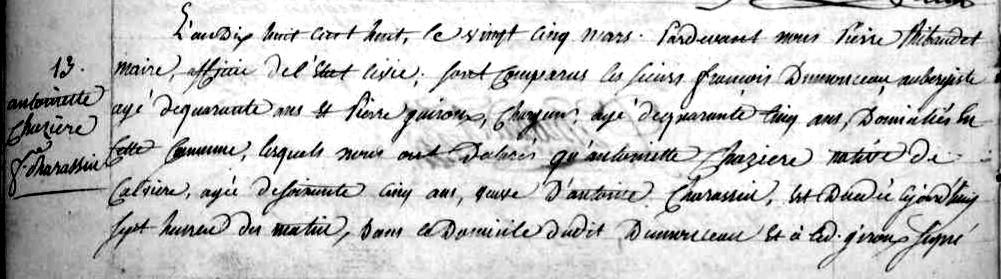 L'an dix huit cent huit, le vingt cinq mars. Pardevant nous Pierre Thibaudet
13.
maire, officier de l'état civil; sont comparus les sieurs françois Dumonceau, aubergiste
antoinette
Chazière
fe Charassin
agé de quarante ans et Pierre guironx, Charron, agé de quarante cinq ans, Domiciliés En
Cette Commune, lesquels nous ont Déclaré qu'antoinette Chaziere native de
agée de soixante cinq ans, veuve D'antoine Charassin, Est Décédé ajourd'huy
sept heures du matin, Dans le Domicile dudit Dumonceau Et a led. giroux signé